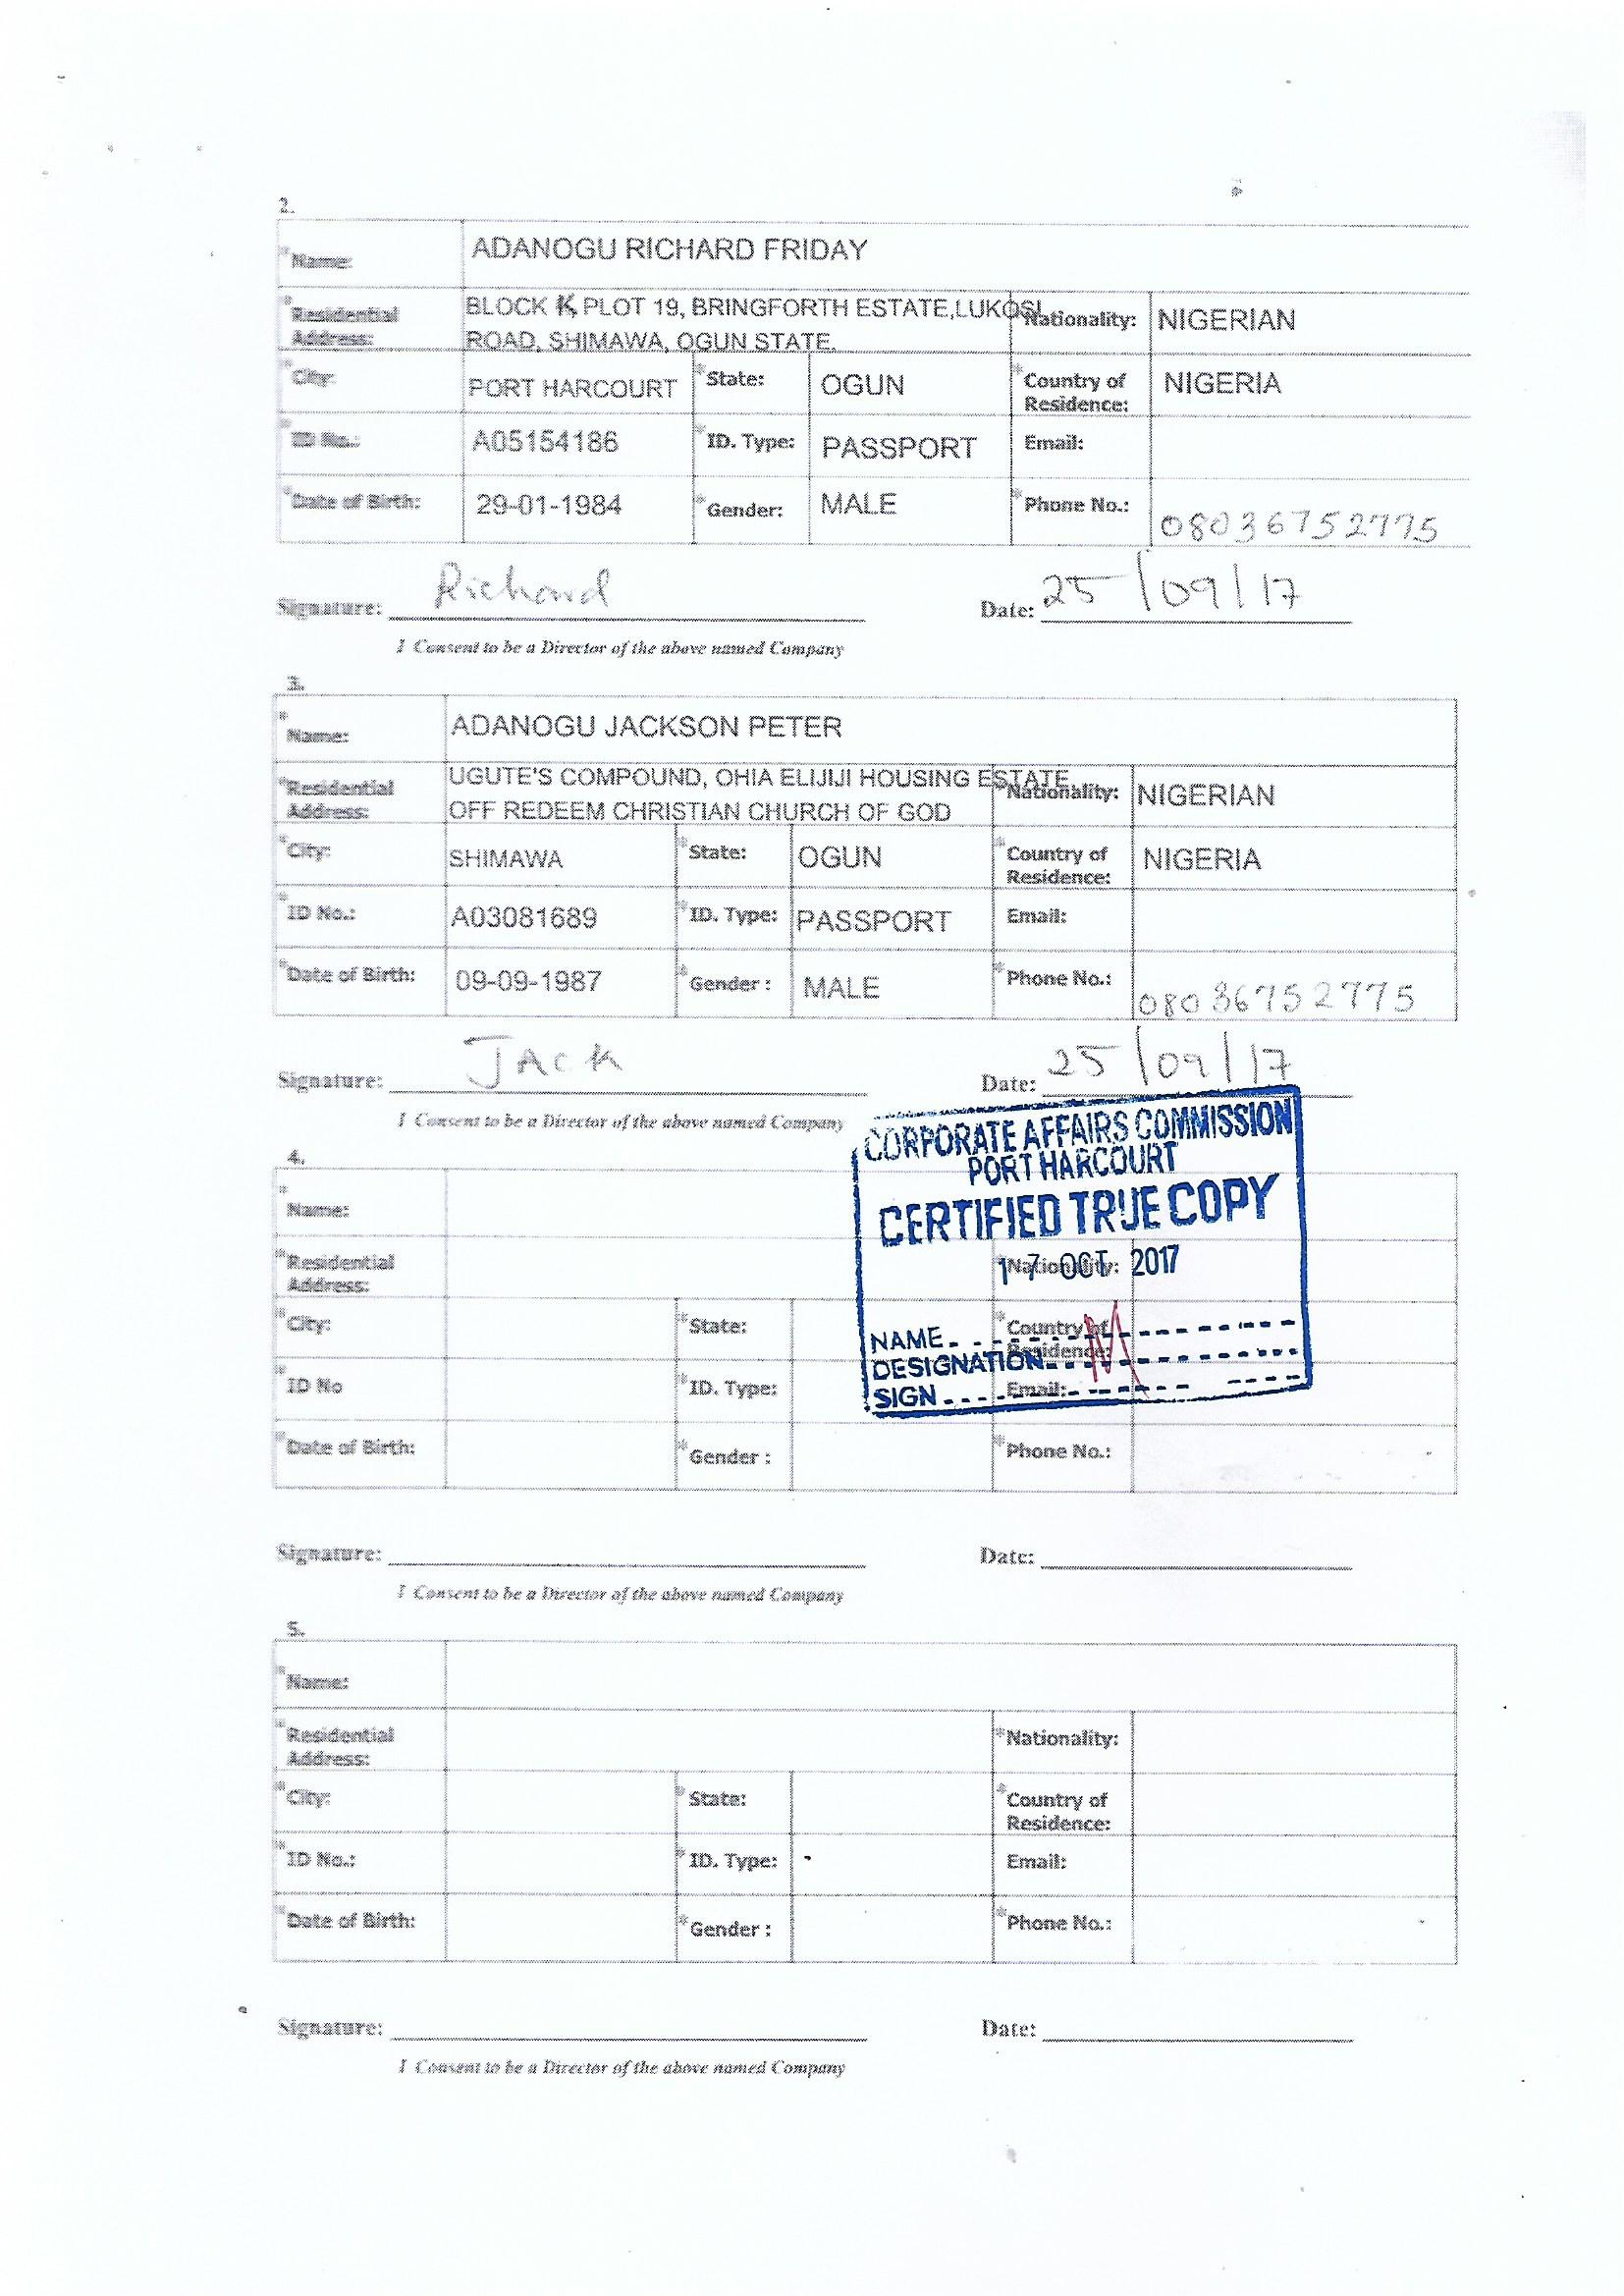 2.
*Name: ADANOGU RICHARD FRIDAY
*Residential Address: BLOCK K, PLOT 19, BRINGFORTH ESTATE,LUKOSI ROAD, SHIMAWA, OGUN STATE. *Nationality: NIGERIAN
*City: PORT HARCOURT *State: OGUN *Country of Residence: NIGERIA
*ID No.: A05154186 *ID. Type: PASSPORT Email:
*Date of Birth: 29-01-1984 *Gender: MALE *Phone No.: 08036752775
Signature: Richard Date: 25/09/17
I Consent to be a Director of the above named Company
3.
*Name: ADANOGU JACKSON PETER
*Residential Address: UGUTE'S COMPOUND, OHIA ELIJIJI HOUSING ESTATE OFF REDEEM CHRISTIAN CHURCH OF GOD *Nationality: NIGERIAN
*City: SHIMAWA *State: OGUN *Country of Residence: NIGERIA
*ID No.: A03081689 *ID. Type: PASSPORT Email:
*Date of Birth: 09-09-1987 *Gender : MALE *Phone No.: 08036752775
Signature: JACK Date: 25/09/17
I Consent to be a Director of the above named Company
CORPORATE AFFAIRS COMMISSION
PORT HARCOURT
CERTIFIED TRUE COPY
17 OCT 2017
NAME
DESIGNATION
SIGN
4.
*Name:
*Residential Address: *Nationality:
*City: *State: *Country of Residence:
*ID No *ID. Type: Email:
*Date of Birth: *Gender : *Phone No.:
Signature: Date:
I Consent to be a Director of the above named Company
5.
*Name:
*Residential Address: *Nationality:
*City: *State: *Country of Residence:
*ID No.: *ID. Type: Email:
*Date of Birth: *Gender : *Phone No.:
Signature: Date:
I Consent to be a Director of the above named Company